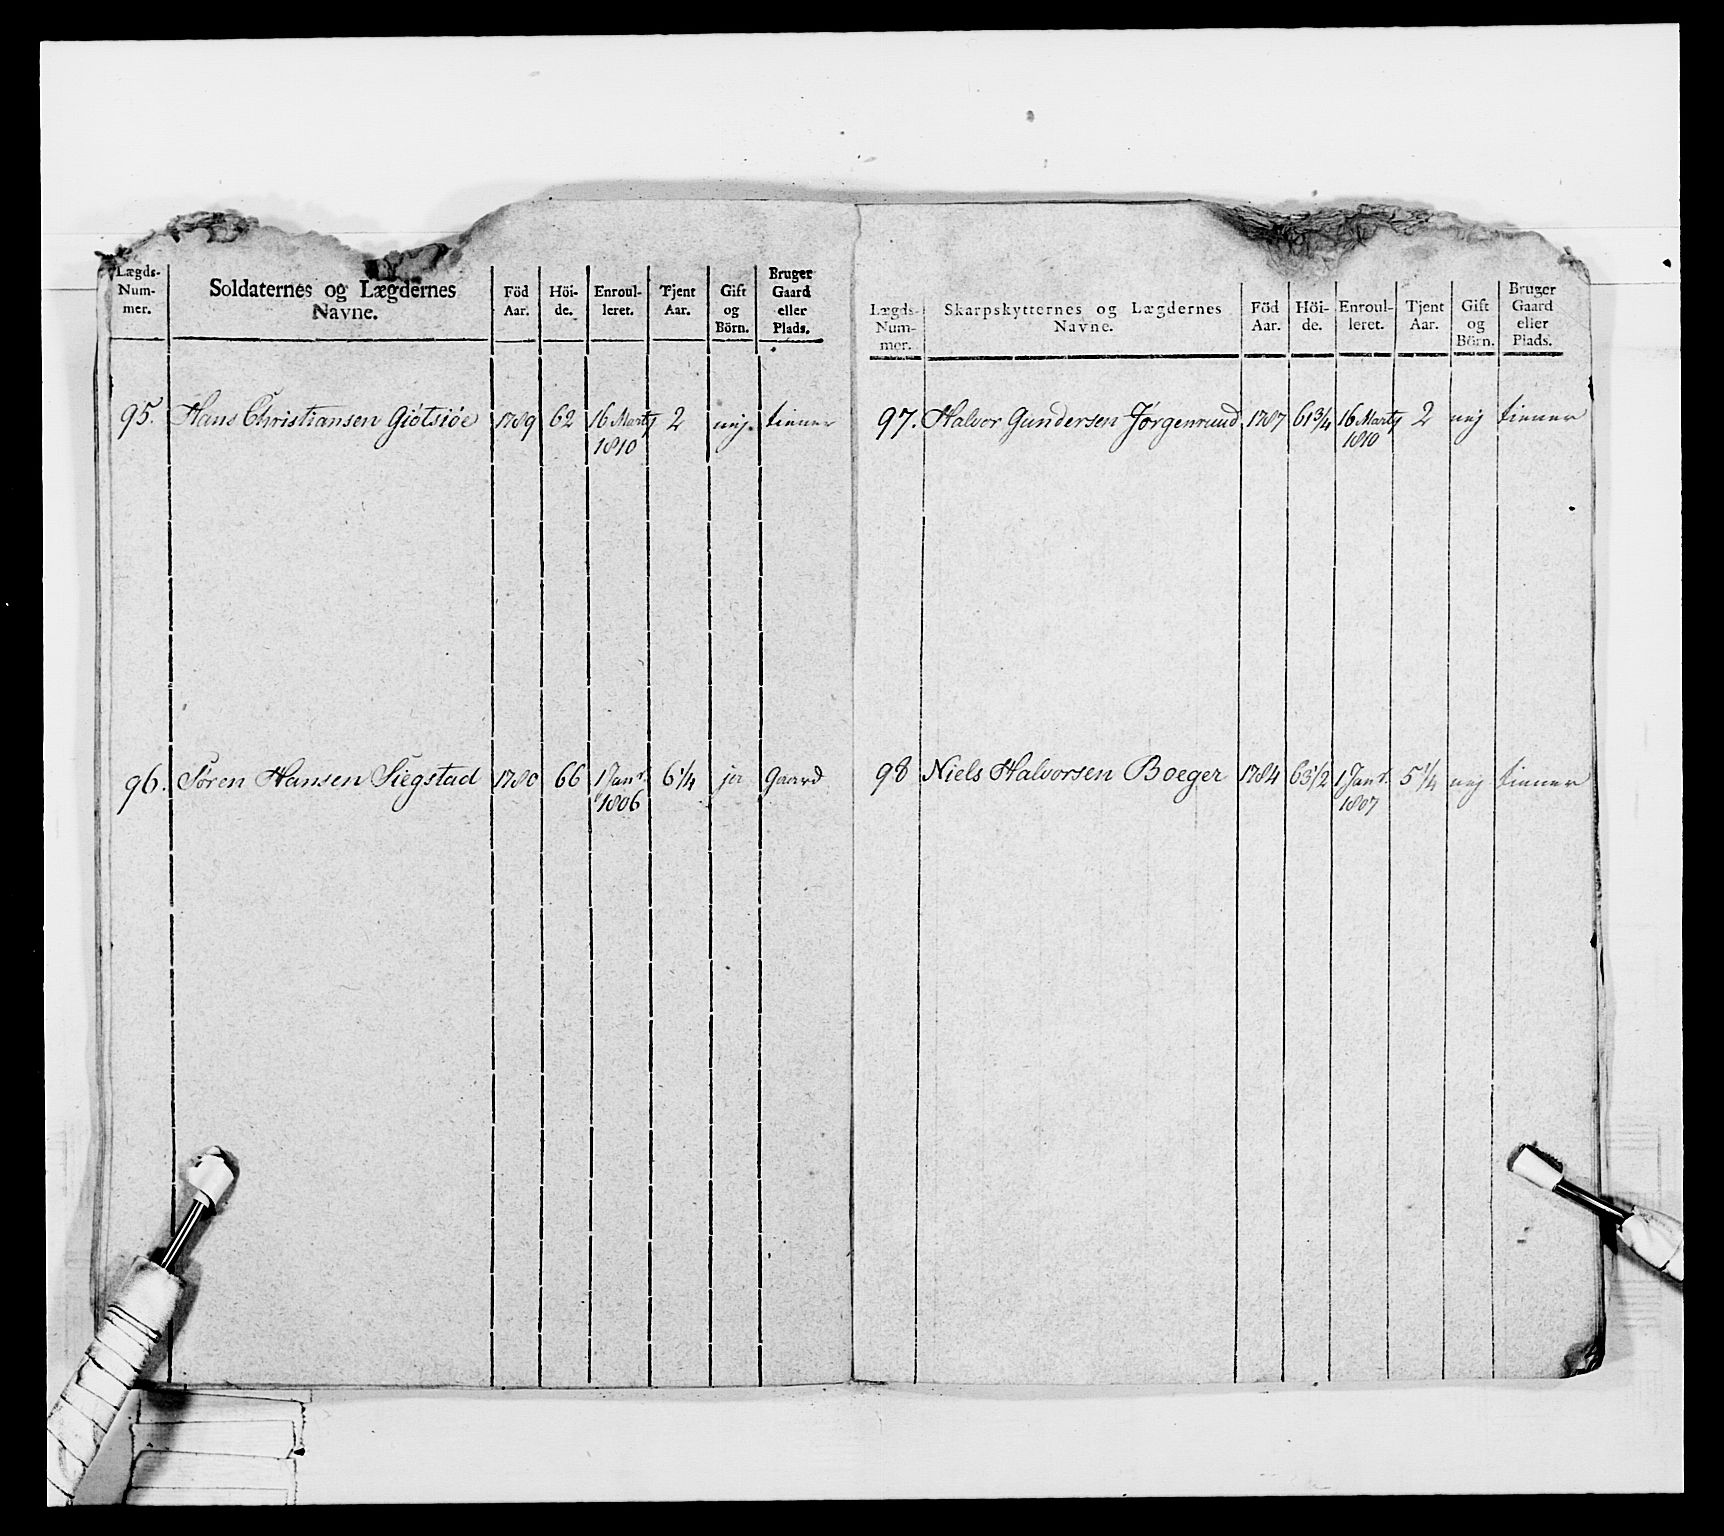 Lægds-Num-mer. Soldaternes og Lægdernes Navne. Föd Aar. Höi-de. Enroul-leret. Tjent Aar. Gift og Börn. Bruger Gaard eller Plads.
95. Hans Christiansen Giótsióe 1789 62 16 Marty 2 nej. tiener
1810
96. Sóren Hansen Siegstad 1780 66 1 Janr. 6 1/4 ja Gaard
1806
Lægds-Num-mer. Skarpskytternes og Lægdernes Navne. Föd Aar. Höi-de. Enroul-leret. Tjent Aar. Gift og Börn. Bruger Gaard eller Plads.
97. Halvor Gundersen Jórgenrund 1787 61 3/4 16 Marty 2 nej tiener
1810
98 Niels Halvorsen Boeger 1784 63 1/2 1 Janr. 5 1/4 nej tiener
1807